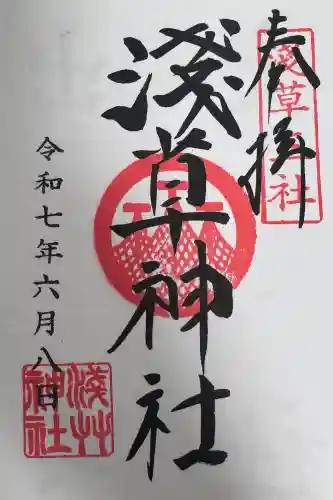 奏拝
淺草神社
令和七年六月八日
淺草神社
淺草神社